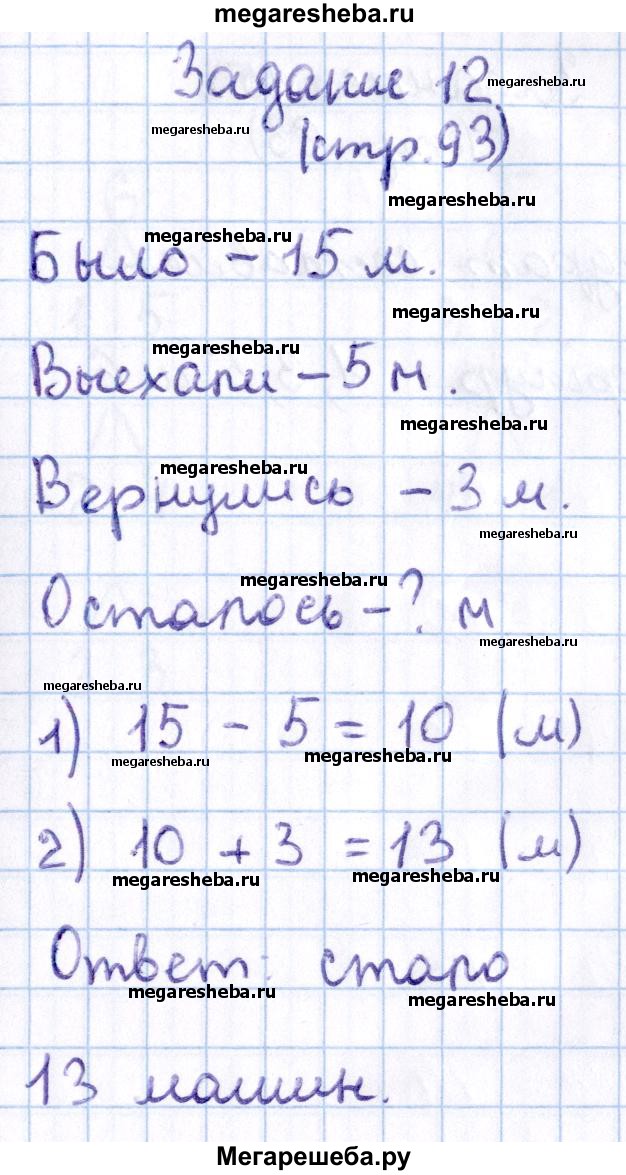 megaresheba.ru
Задание 12
megaresheba.ru
megaresheba.ru
(стр. 93)
megaresheba.ru
megaresheba.ru
Было – 15 м.
megaresheba.ru
megaresheba.ru
Выехали – 5 м.
megaresheba.ru
megaresheba.ru
Вернулись – 3 м.
megaresheba.ru
megaresheba.ru
Осталось – ? м
megaresheba.ru
megaresheba.ru
1) 15 – 5 = 10 (м)
megaresheba.ru
megaresheba.ru
2) 10 + 3 = 13 (м)
megaresheba.ru
megaresheba.ru
Ответ: стало
megaresheba.ru
megaresheba.ru
13 машин.
Мегарешеба.ру